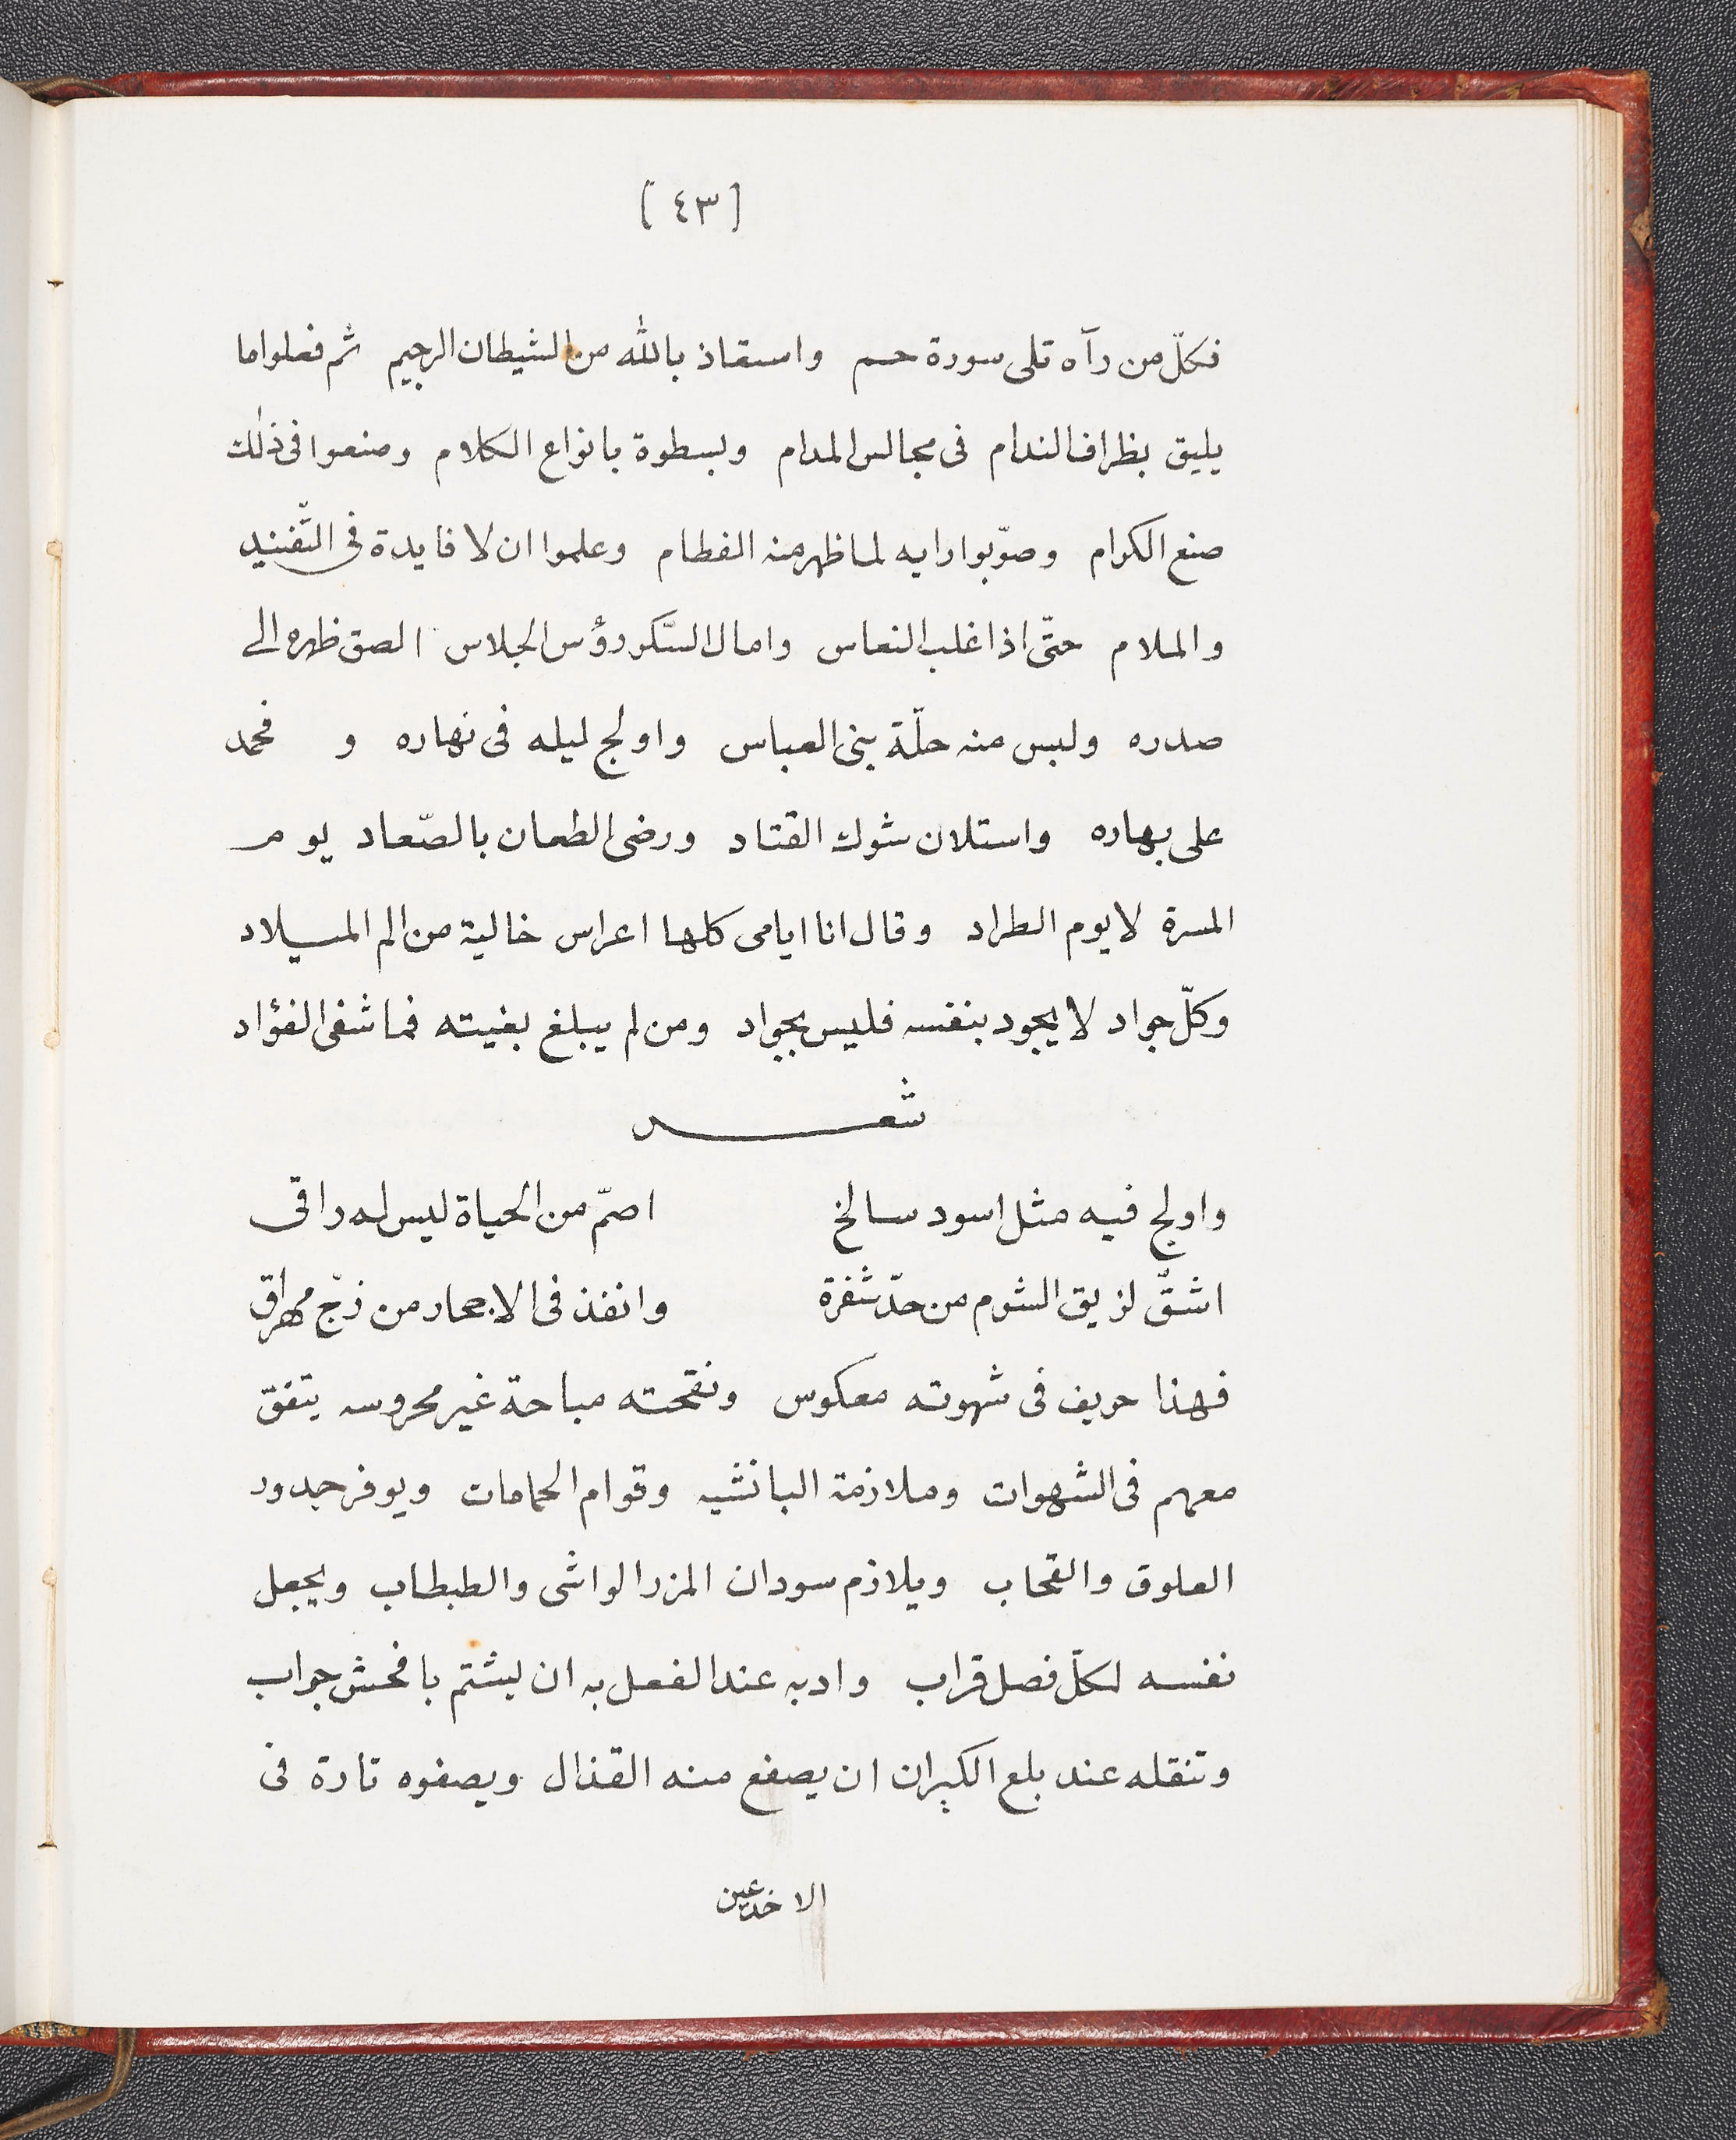 [٤٣]
فكلّ من رآه تلى سورة حم واستعاذ بالله من الشيطان الرجيم ثم فعلوا ما
يليق بظراف الندام فى مجالس المدام وبسطوة بانواع الكلام وصنعوا فى ذلك
صنع الكرام وصوّبوا رايه لما ظهر منه الفطام وعلموا ان لا فايدة فى التّفنيد
والملام حتّى اذا غلب النعاس وامال السّكر رؤس الجلاس الصق ظهره الى
صدره ولبس منه حلّة بنى العباس واولج ليله فى نهاره و فحمد
على بهاره واستلان شوك القتاد ورضى الطعان بالصّعاد يوم
المسرة لا يوم الطراد وقال انا ايامى كلها اعراس خالية من الم الميلاد
وكلّ جواد لا يجود بنفسه فليس بجواد ومن لم يبلغ بغيته فما شفى الفؤاد
شعر
واولج فيه مثل اسود سالخ اصمّ من الحياة ليس له راقى
اشقّ لزيق الشرم من حدّ شفرة وانفذ فى الاجحار من زجّ مهراق
فهذا حريف فى شهوته معكوس ونقحته مباحة غير محروسه يتفق
معهم فى الشهوات وملازمة البانشيه وقوام الحمامات ويوفر جدور
العلوق والقحاب ويلازم سودان المزر الواشى والطبطاب ويجعل
نفسه لكلّ فصل قراب وادبه عند الفعل به ان يشتم بافحش جواب
وتنقله عند بلع الكيران ان يصفع منه القذال ويصفوه تارة فى
الاخدعين